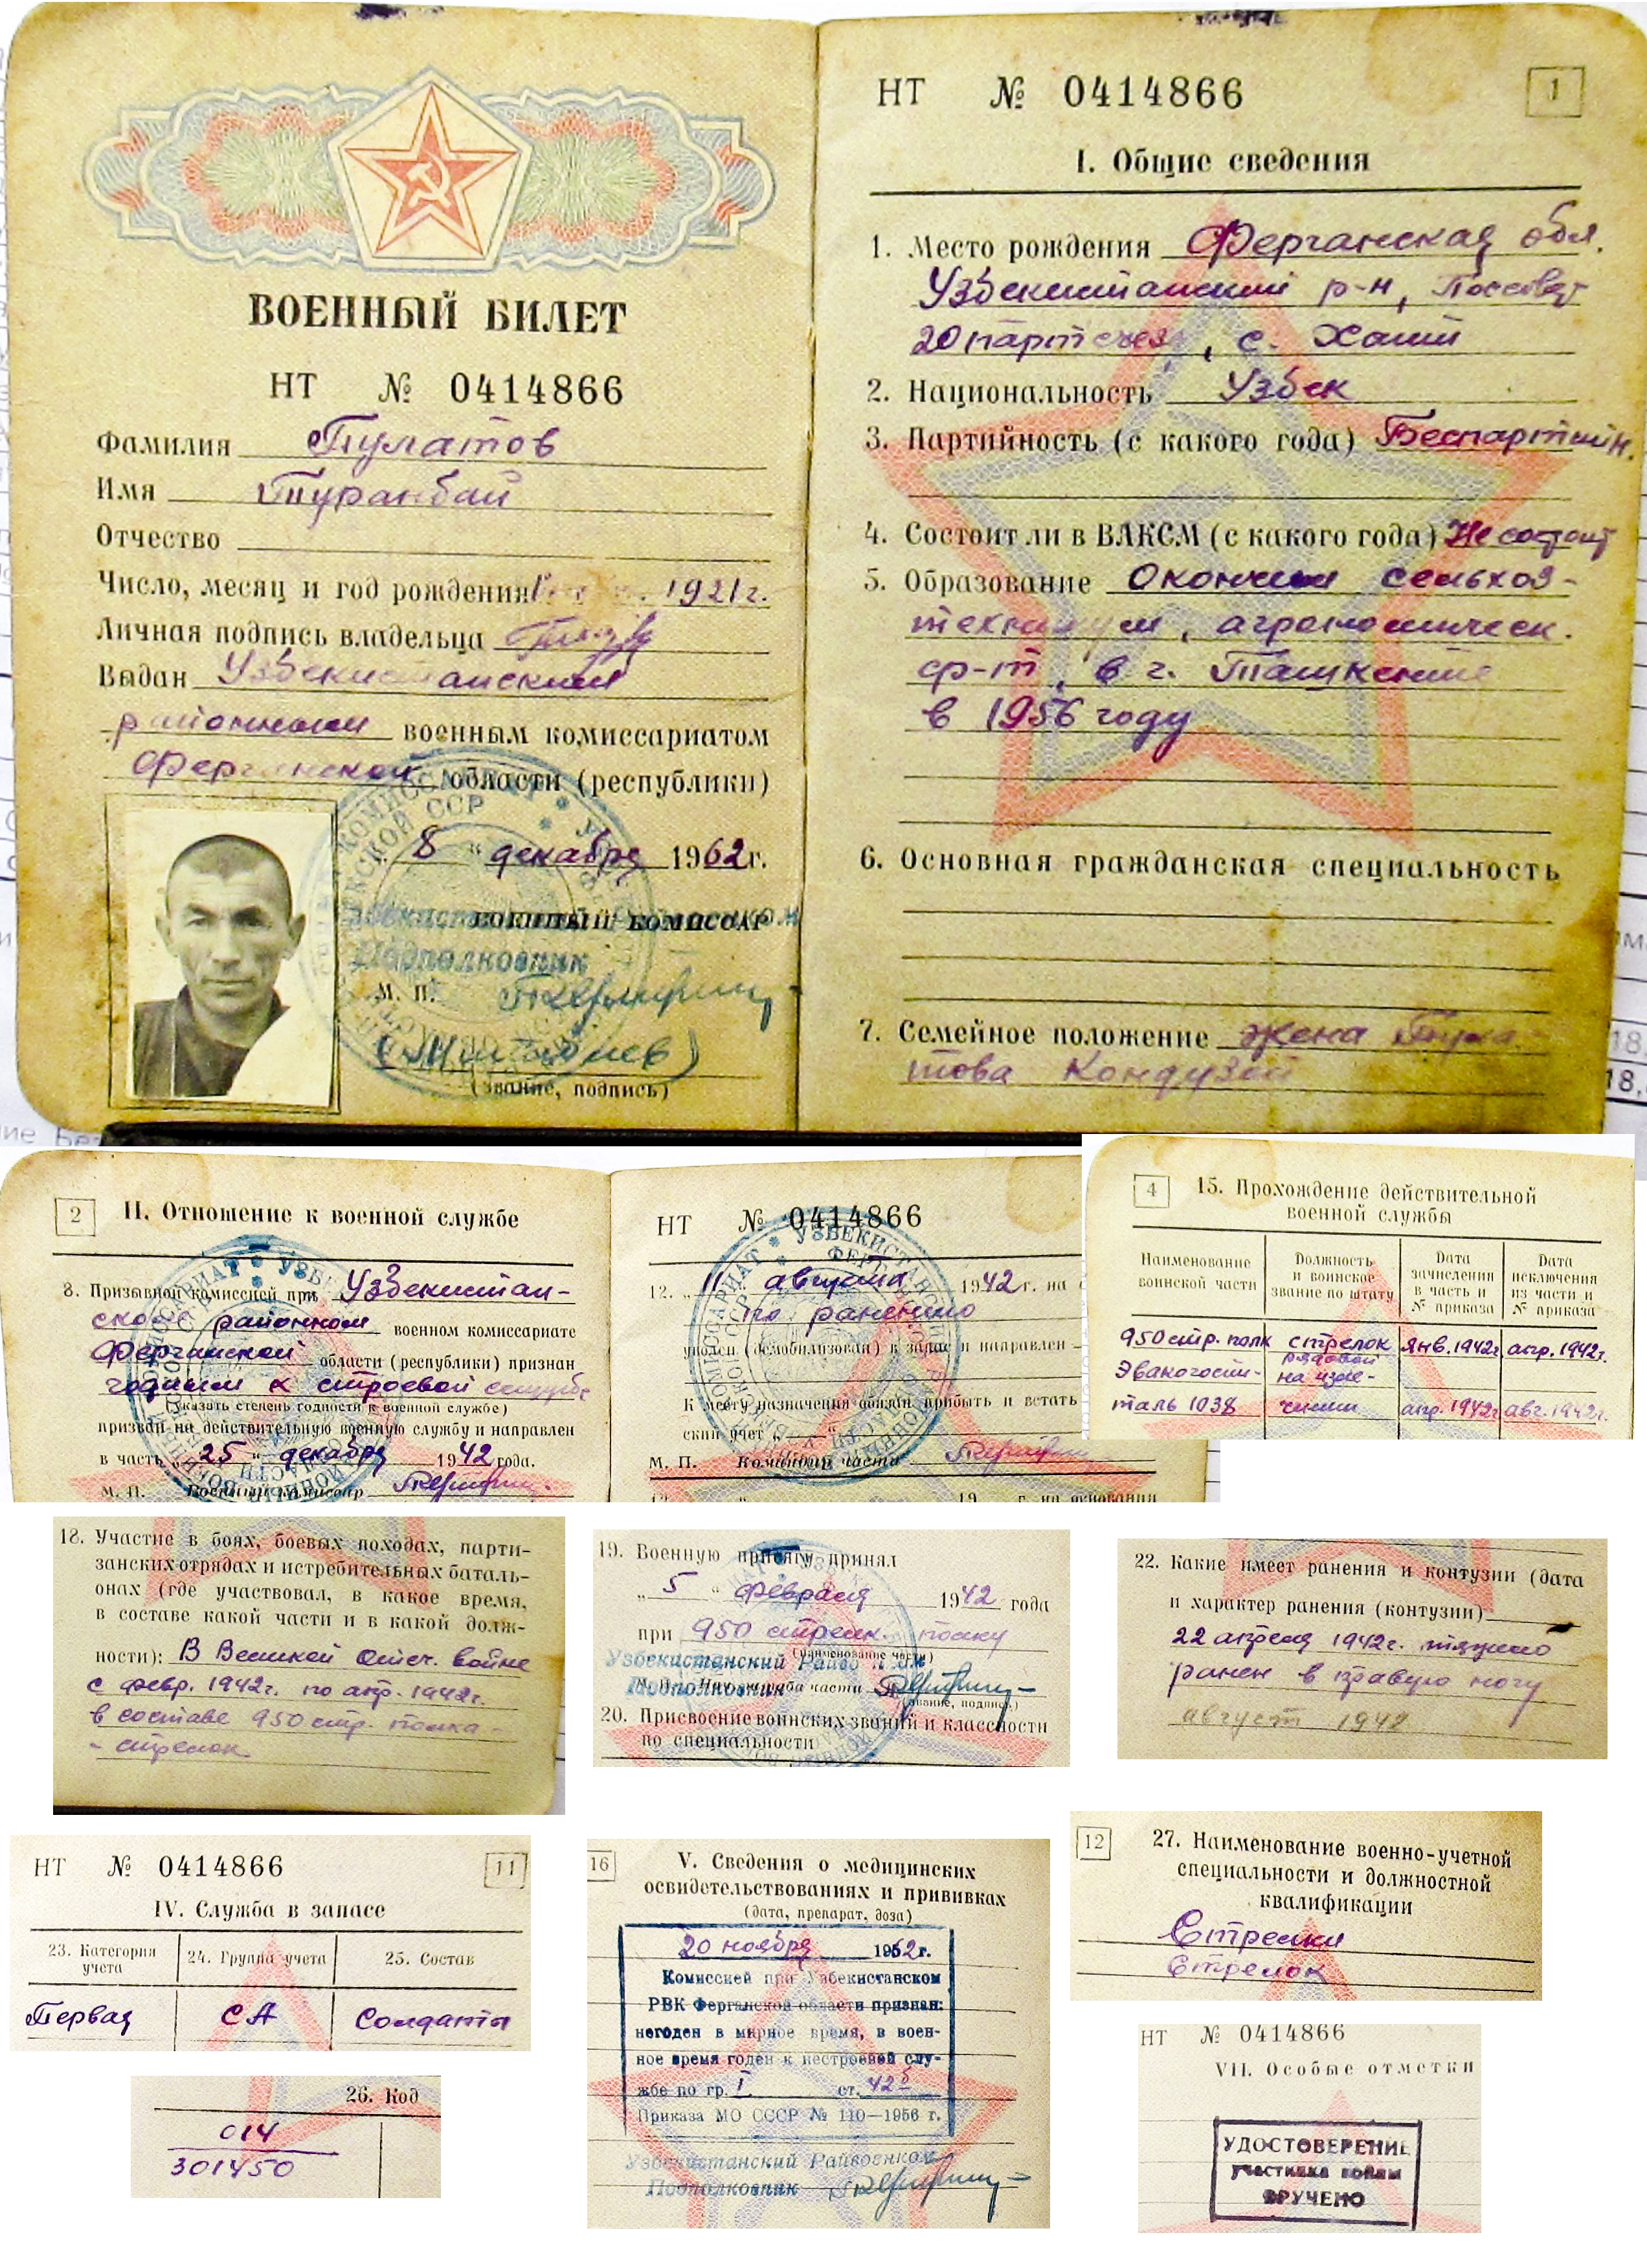 ВОЕННЫЙ БИЛЕТ
НТ № 0414866
Фамилия Пулатов
Имя Туранбай
Отчество
Число, месяц и год рождения 1921г.
Личная подпись владельца
Выдан Узбекистанским
районным военным комиссариатом
Ферганской области (республики)
8 " декабря 1962г.
ВОЕННЫЙ КОМИССАР
Подполковник
М. П.
(звание, подпись)
НТ № 0414866
1
I. Общие сведения
1. Место рождения Ферганская обл.
Узбекистанский р-н, Поссовет
20 партсъезд, с. Хаит
2. Национальность Узбек
3. Партийность (с какого года) Беспартийн.
4. Состоит ли в ВЛКСМ (с какого года) Не состоит
5. Образование Окончил сельхоз-
техникум, агрономическ.
ф-т, в г. Ташкенте
в 1956 году
6. Основная гражданская специальность
7. Семейное положение жена Пула
това Кондузой
2
II. Отношение к военной службе
8. Призывной комиссией при Узбекистан-
ском районном военном комиссариате
Ферганской области (республики) признан
годным к строевой службе
(указать степень годности к военной службе)
призван на действительную военную службу и направлен
в часть „25" декабря 1942 года.
М. П. Военный комиссар
НТ № 0414866
12. „11 августа 1942 г. на
по ранению
уволен (демобилизован) в запас и направлен
К месту назначения обязан прибыть и встать
ский учет к „ "
М. П. Командир части
19 г. на основании
4
15. Прохождение действительной
военной службы
Наименование воинской части
Должность и воинское звание по штату
Дата зачисления в часть и № приказа
Дата исключения из части и № приказа
950 стр. полк стрелок рядовой янв. 1942г. апр. 1942г.
Эвакогоспи- на изле-
таль 1038 чении апр. 1942г. авг. 1942г.
18. Участие в боях, боевых походах, парти-
занских отрядах и истребительных баталь-
онах (где участвовал, в какое время,
в составе какой части и в какой долж-
ности): В Великой Отеч. войне
с февр. 1942г. по апр. 1942г.
в составе 950 стр. полка -
- стрелок
19. Военную присягу принял
„5" февраля 1942 года
при 950 стрелк. полку
(наименование части)
Узбекистанский Райво
Подполковник
М. П. Нач. штаба части
(звание, подпись)
20. Присвоение воинских званий и классности
по специальности
22. Какие имеет ранения и контузии (дата
и характер ранения (контузии)
22 апреля 1942г. тяжело
ранен в правую ногу
август 1942
НТ № 0414866
11
IV. Служба в запасе
23. Категория учета
24. Группа учета
25. Состав
Первая СА Солдаты
26. Код
014
301450
16
V. Сведения о медицинских
освидетельствованиях и прививках
(дата, препарат, доза)
20 ноября 1962г.
Комиссией при Узбекистанском
РВК Ферганской области признан:
негоден в мирное время, в воен-
ное время годен к нестроевой слу-
жбе по гр. I ст. 42б
Приказа МО СССР № 110—1956 г.
Узбекистанский Райвоенком
Подполковник
12
27. Наименование военно-учетной
специальности и должностной
квалификации
Стрелки
Стрелок
НТ № 0414866
VII. Особые отметки
УДОСТОВЕРЕНИЕ
участника войны
ВРУЧЕНО